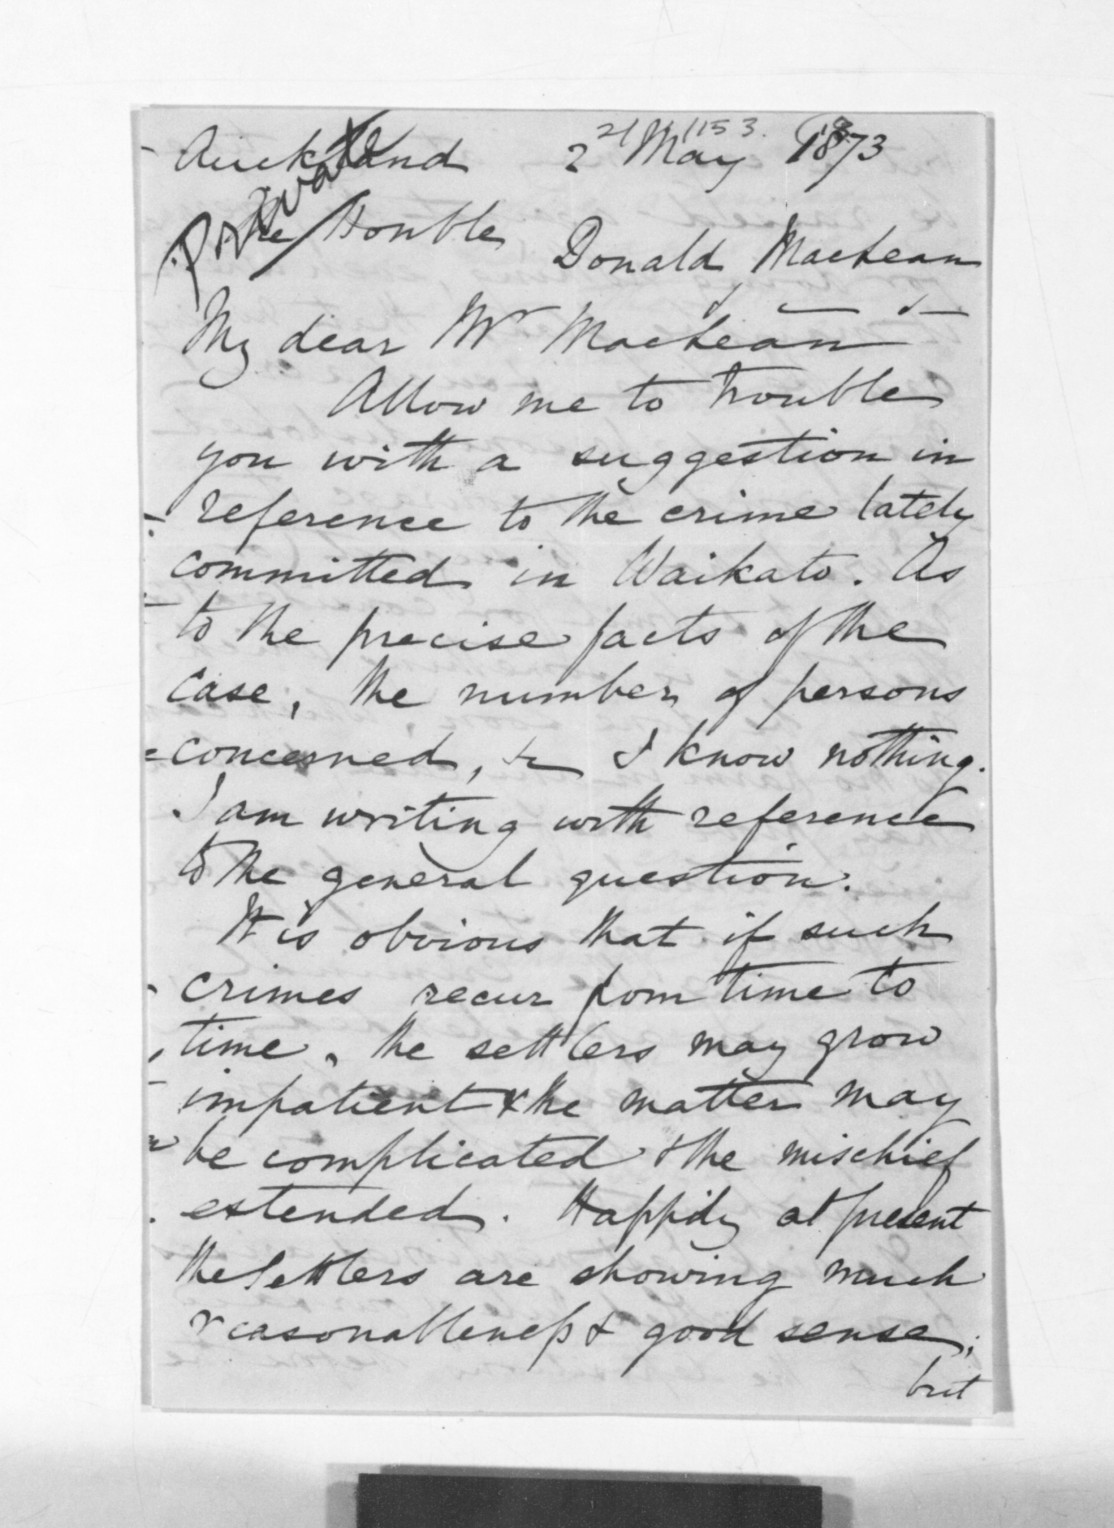 Auckland 2 May 1873
Private
The Honble
Donald MacLean
My dear Mr MacLean
Allow me to trouble
you with a suggestion in
reference to the crime lately
committed in Waikato. As
to the precise facts of the
case, the number of persons
concerned, &c I know nothing.
I am writing with reference
to the general question.
It is obvious that if such
crimes recur from time to
time, the settlers may grow
impatient & the matter may
be complicated & the mischief
extended. Happily at present
the settlers are showing much
reasonableness & good sense,
but